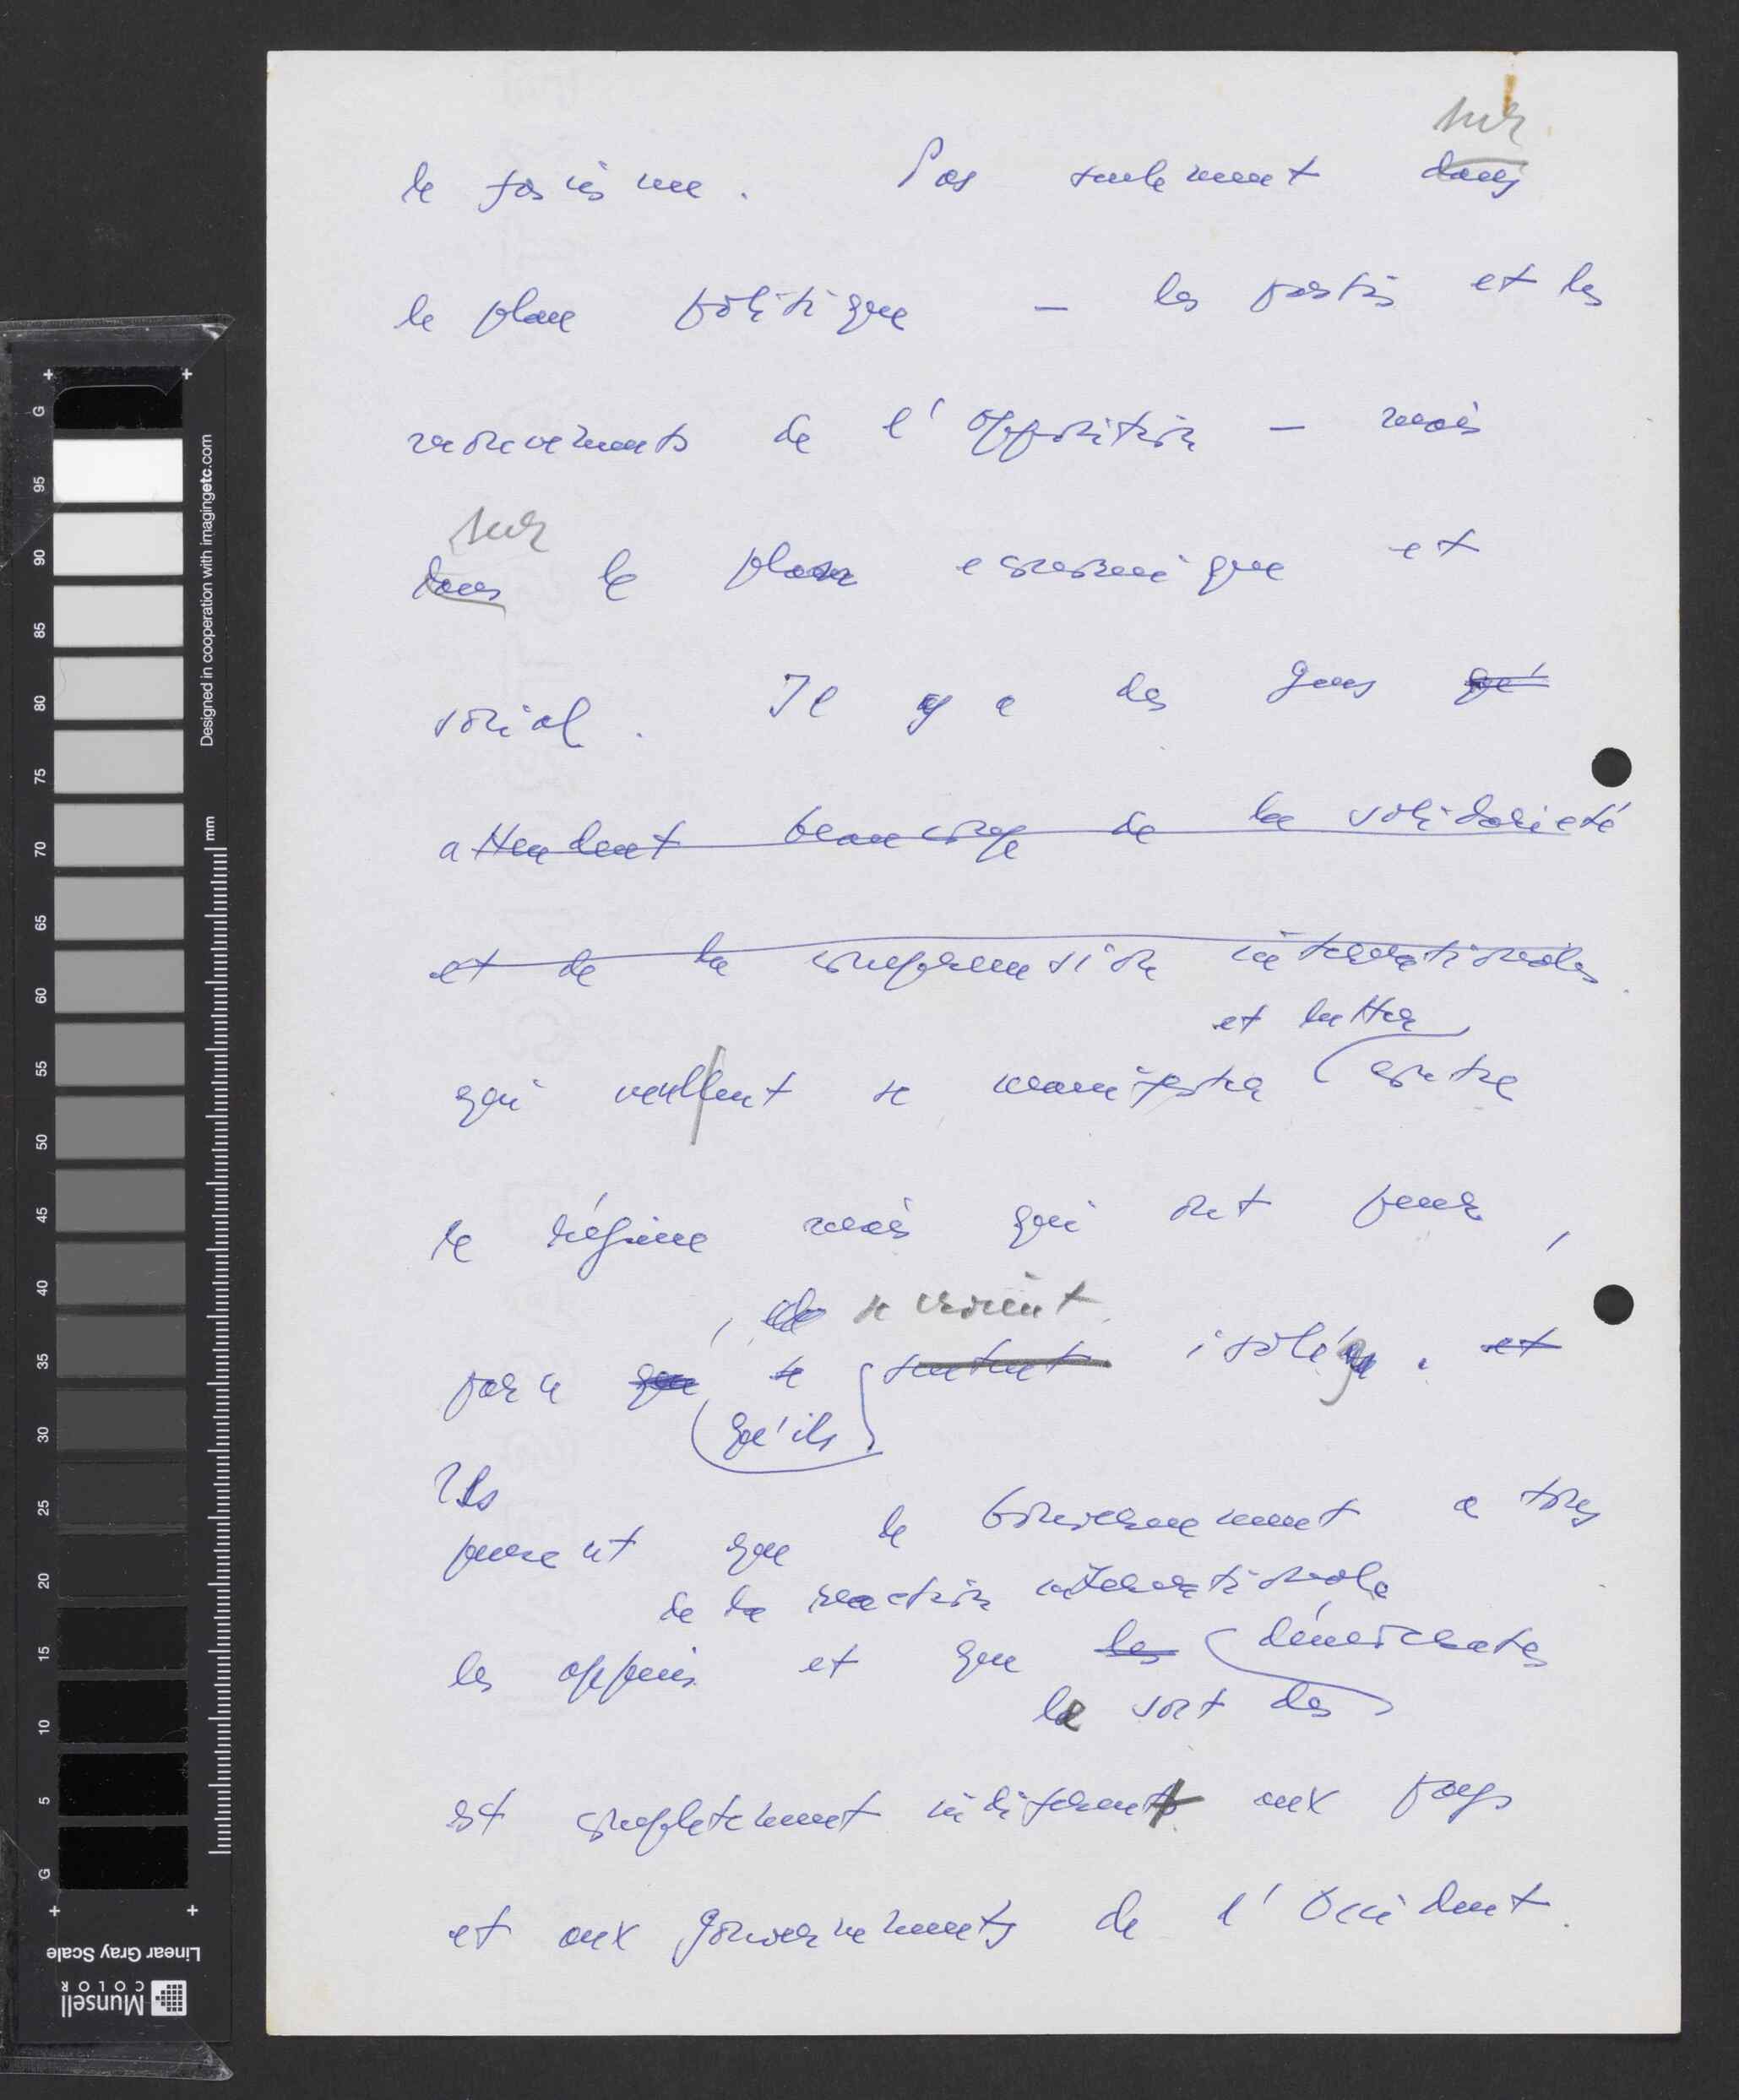 sur
le fascisme. Pas seulement dans
le plan politique — les partis et les
mouvements de l'opposition — mais
sur
dans le plan economique et
social. Il y a des gens qui
attendent beaucoup de la solidarieté
et de la comprension internationales.
et lutter
qui veullent se manifester contre
le régime mais qui ont peur,
, se croient
parce que se sentent isolés. et
qu'ils
Ils
pensent que le Gouvernement a tous
de la reaction internationale
les appuis et que les démocrates
le sort des
est completement indiferent aux pays
et aux gouvernements de l'Occident.
G
95
90
85
80
75
70
65
60
55
50
45
40
35
30
25
20
15
10
5
G
mm
Designed in cooperation with imagingetc.com
Linear Gray Scale
Munsell
COLOR